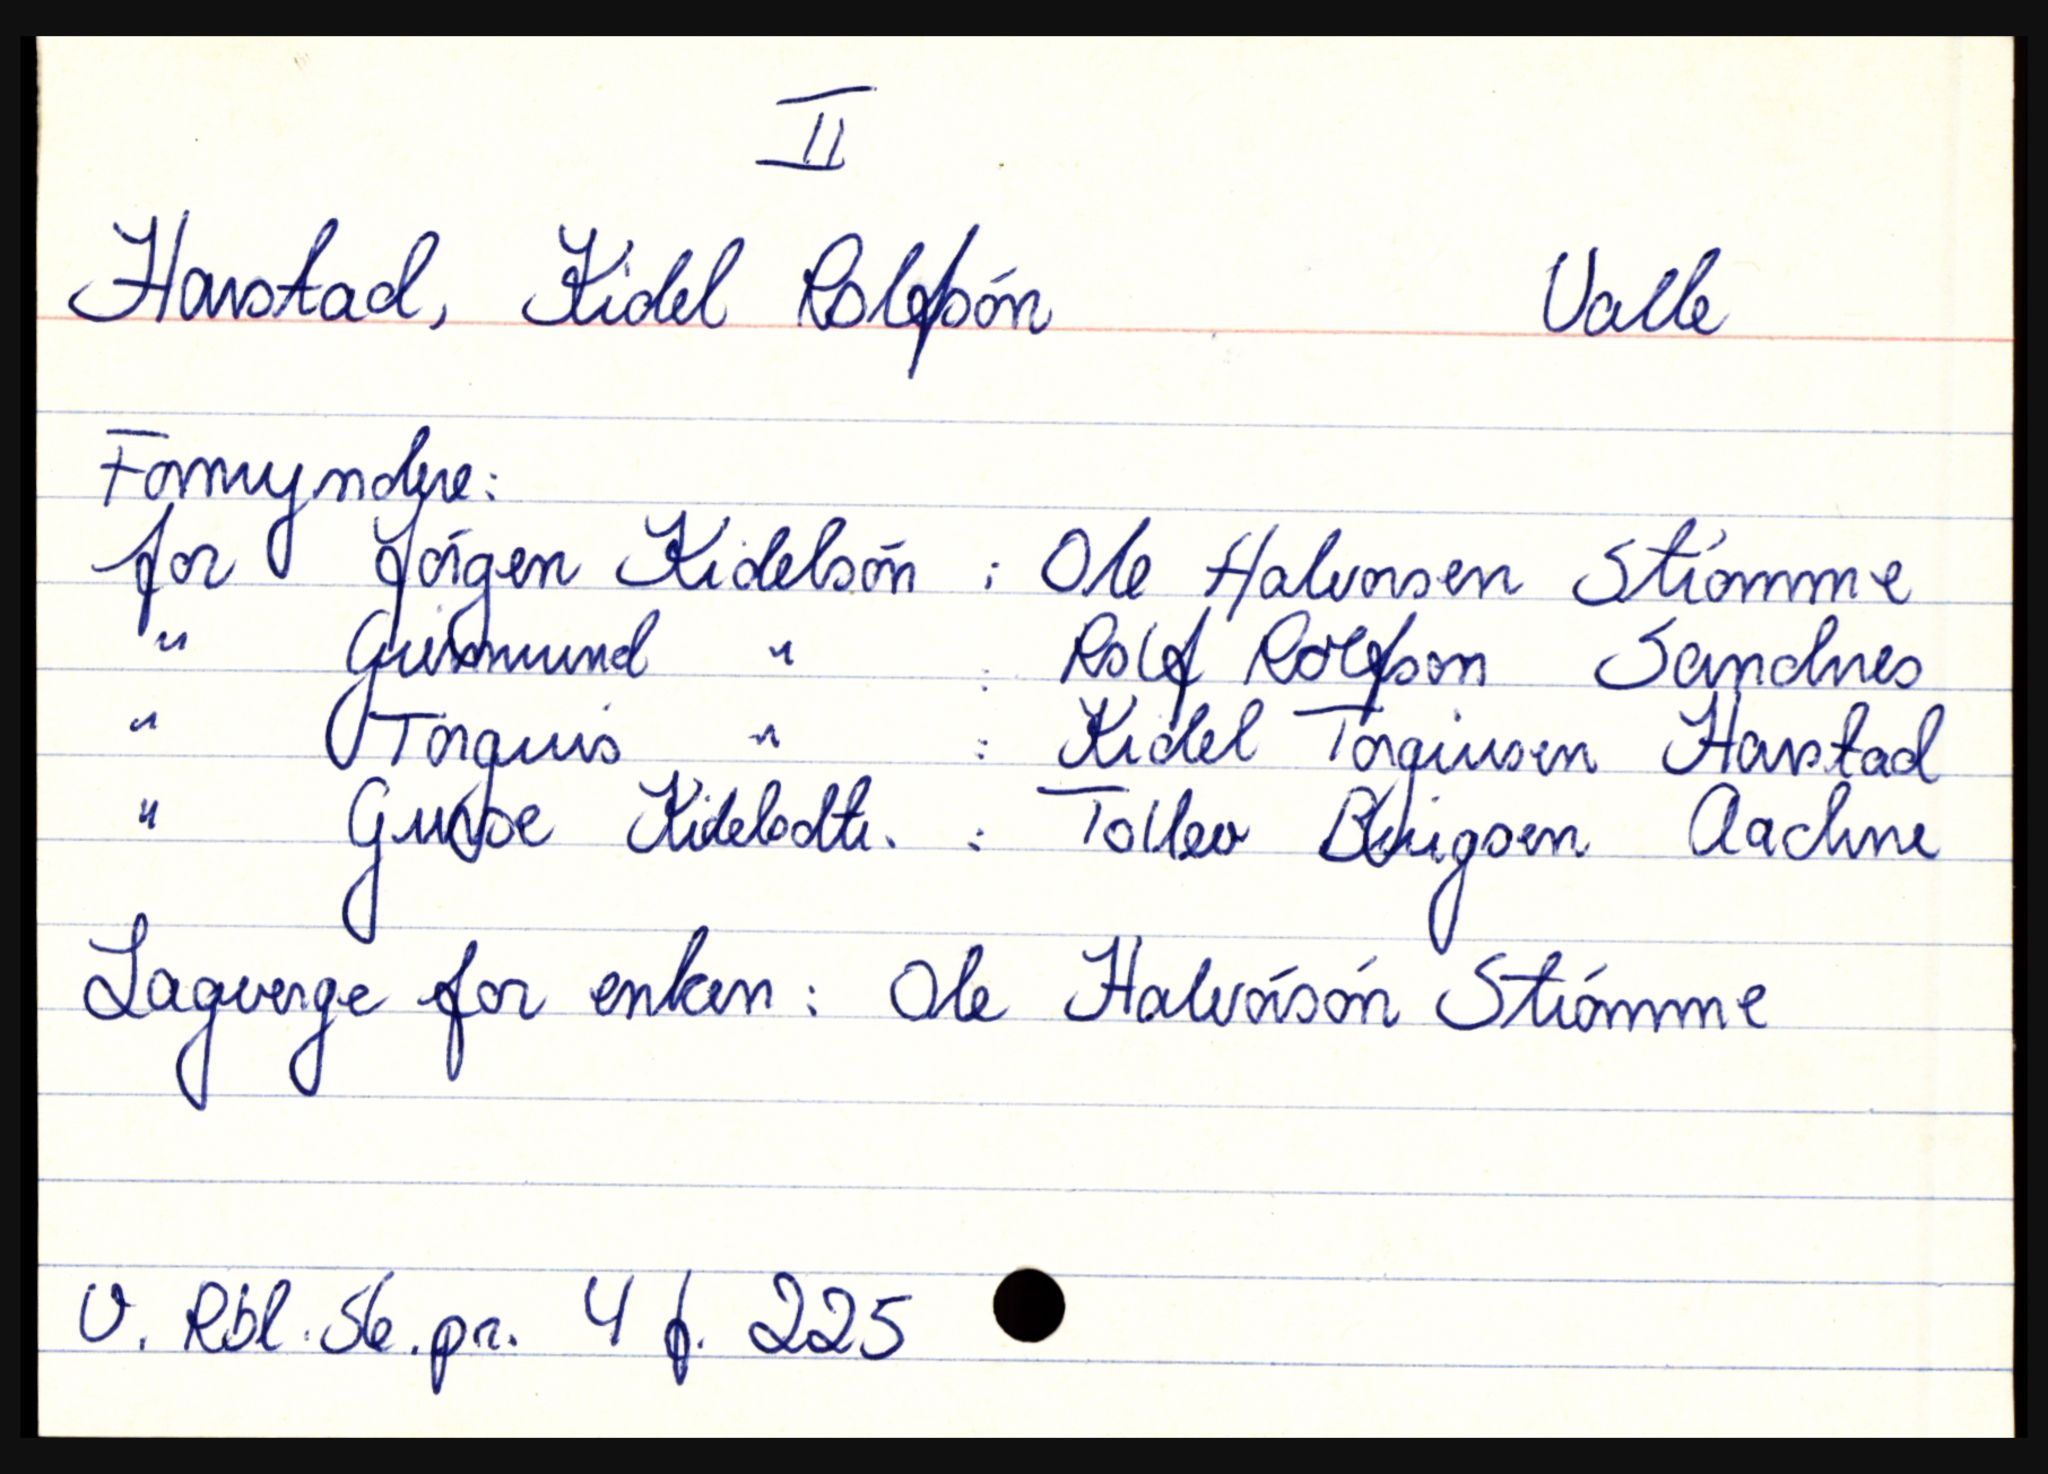 II
Harstad, Kidel Rolefsón Valle
Formyndere:
for Jórgen Kidelsón : Ole Halvorsen Stiómme
" Gunmund " : Rolf Rolfson Sandnes
" Torguis " : Kidel Torgiusen Harstad
" Kidelsdtr. : Tollev Aachne
Lagverge for enken: Ole Halvórsón Stiómme
V. Rbl. Sk.pr. 4 f. 225